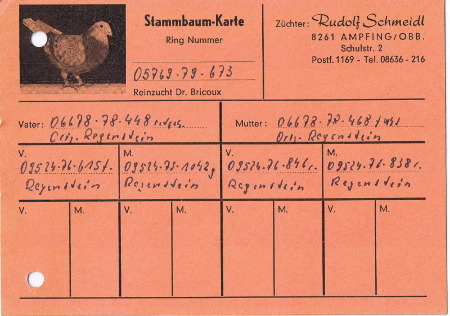 Stammbaum-Karte
Ring Nummer
05769-79-673
Reinzucht Dr. Bricoux
Züchter: Rudolf Schmeidl
8261 AMPFING/OBB.
Schulstr. 2
Postf. 1169 - Tel. 08636 - 216
Vater: 06678-78-448
Orig. Regenstein
Mutter: 06678-78-468
Orig. Regenstein
V. M. V. M.
09524-76-615 09524-75-1042 09524-76-846 r. 09524-76-838 r.
Regenstein Regenstein Regenstein Regenstein
V. M. V. M. V. M. V. M.